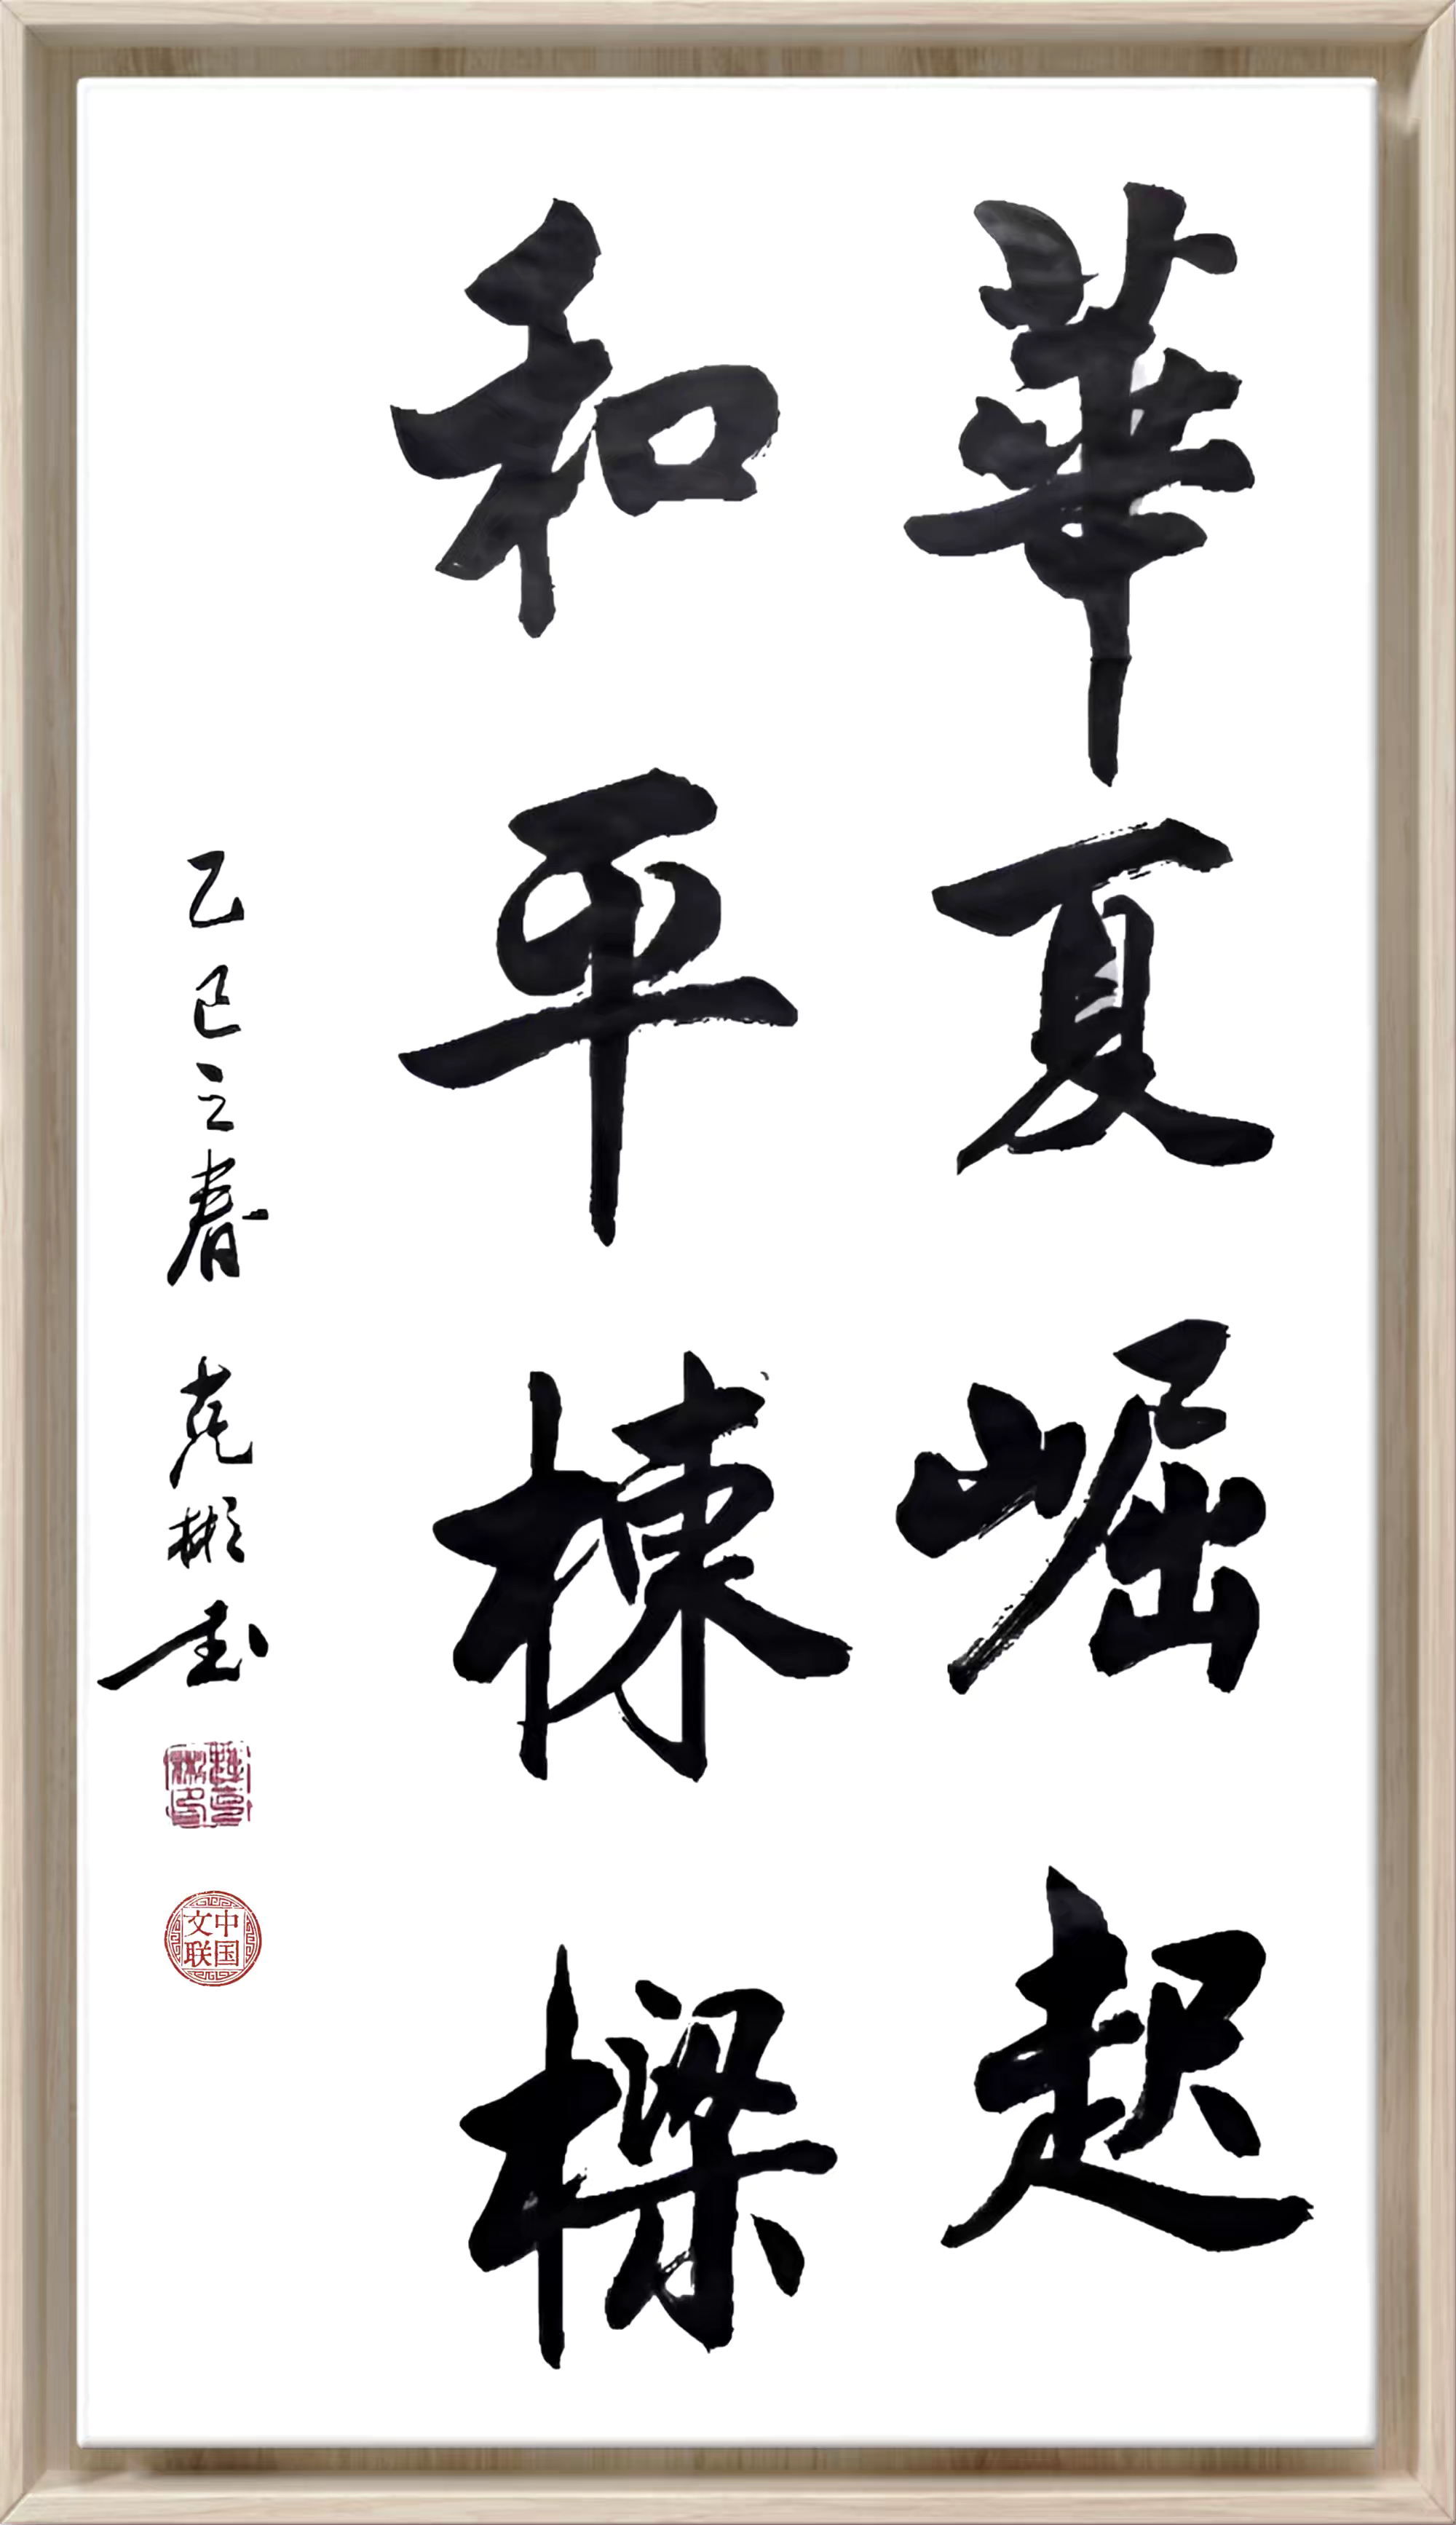 華夏崛起
和平棟樑
乙巳之春 彬
中国
文联